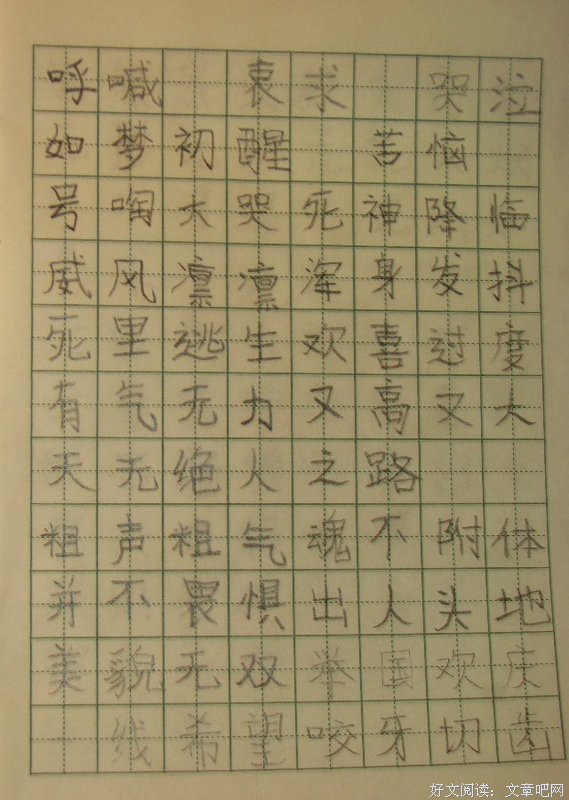 呼喊 哀求 哭泣
如梦初醒 苦恼
号啕大哭死神降临
威风凛凛浑身发抖
死里逃生欢喜过度
有气无力又高又大
天无绝人之路
粗声粗气魂不附体
并不畏惧出人头地
美貌无双举国欢庆
一线希望咬牙切齿
好文阅读：文章吧网